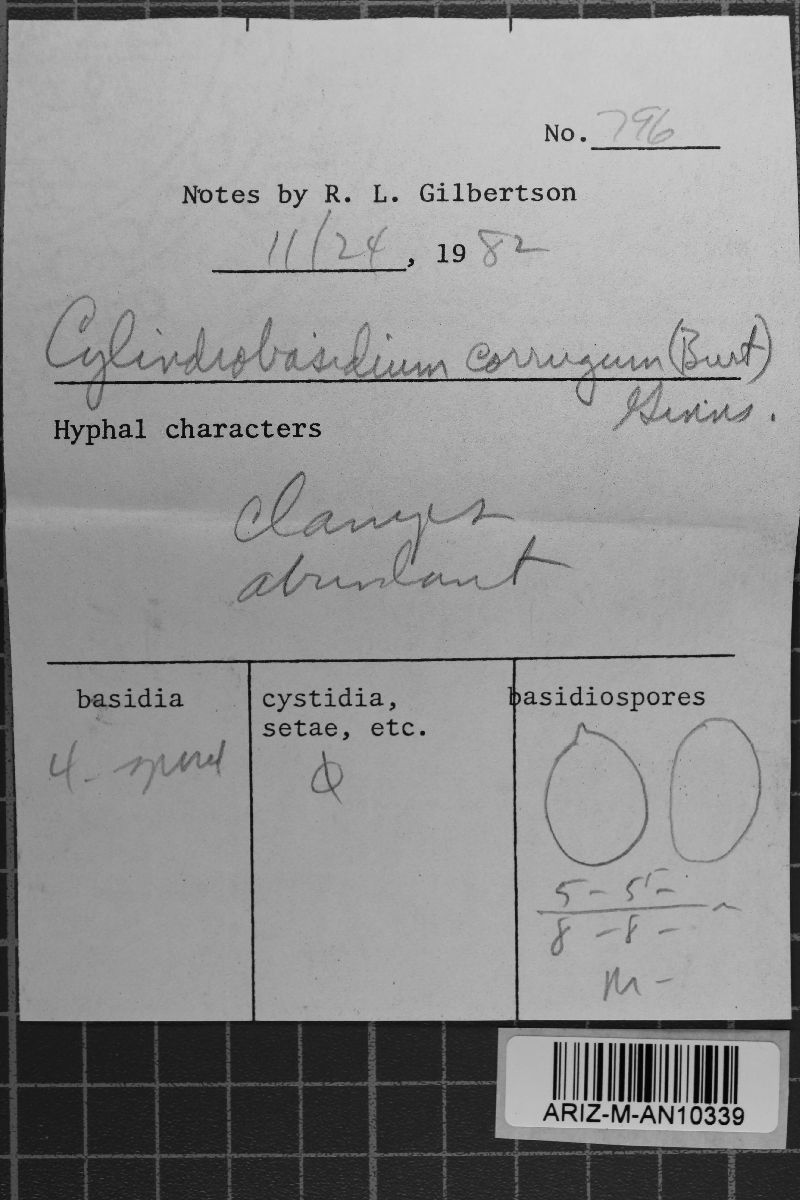 No. 796
Notes by R. L. Gilbertson
11/24, 1982
Cylindrobasidium corrugum (Burt)
Ginns.
Hyphal characters
clamps
abundant
basidia
4-spored
cystidia,
setae, etc.
basidiospores
5 - 5 -
8 - 8 -
M -
ARIZ-M-AN10339